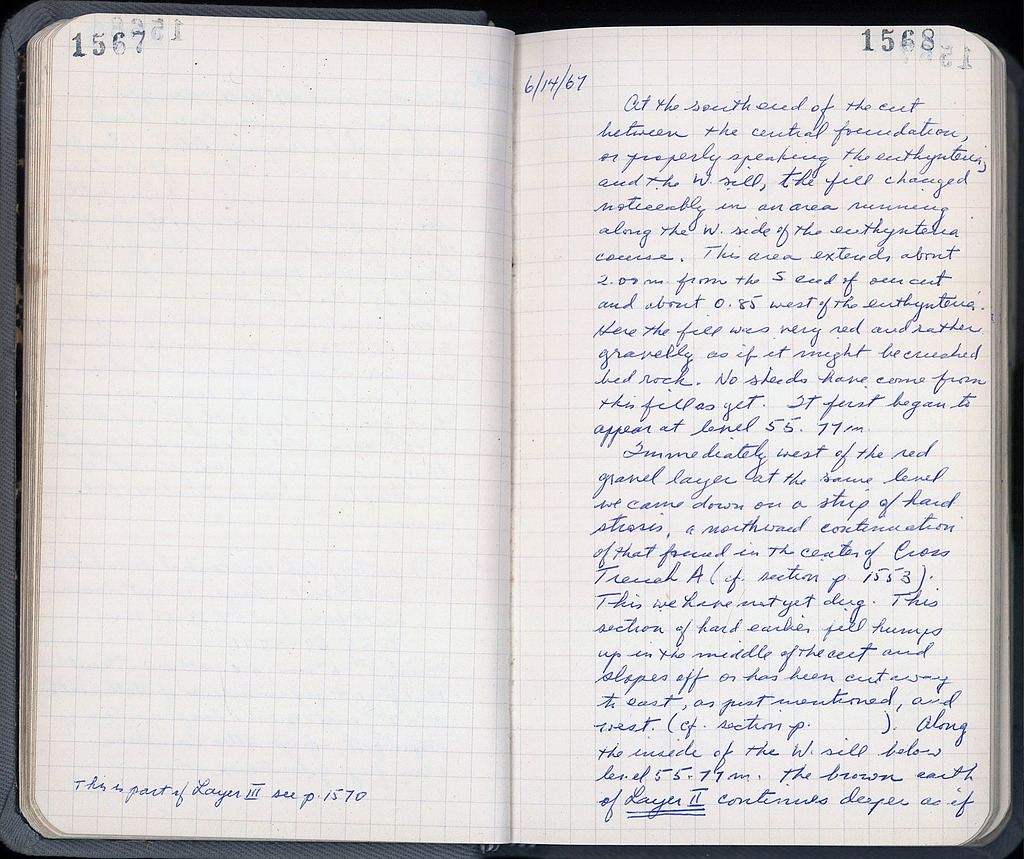 1567
This is part of Layer III see p. 1570
1568
6/14/67
At the south end of the cut
between the central foundation,
or properly speaking the euthynteria,
and the W. sill, the fill changed
noticeably in an area running
along the W. side of the euthynteria
course. This area extends about
2.00 m. from the S end of our cut
and about 0.85 west of the euthynteria.
Here the fill was very red and rather
gravelly as if it might be crushed
bed rock. No sherds have come from
this fill as yet. It first began to
appear at level 55.77 m.
Immediately west of the red
gravel layer at the same level
we came down on a strip of hard
stroses, a northward continuation
of that found in the center of Cross
Trench A (cf. section p. 1553).
This we have not yet dug. This
section of hard earlier fill humps
up in the middle of the cut and
slopes off or has been cut away
to east, as just mentioned, and
west. (cf. section p. ). Along
the inside of the W. sill below
level 55.77 m. the brown earth
of Layer II continues deeper as if